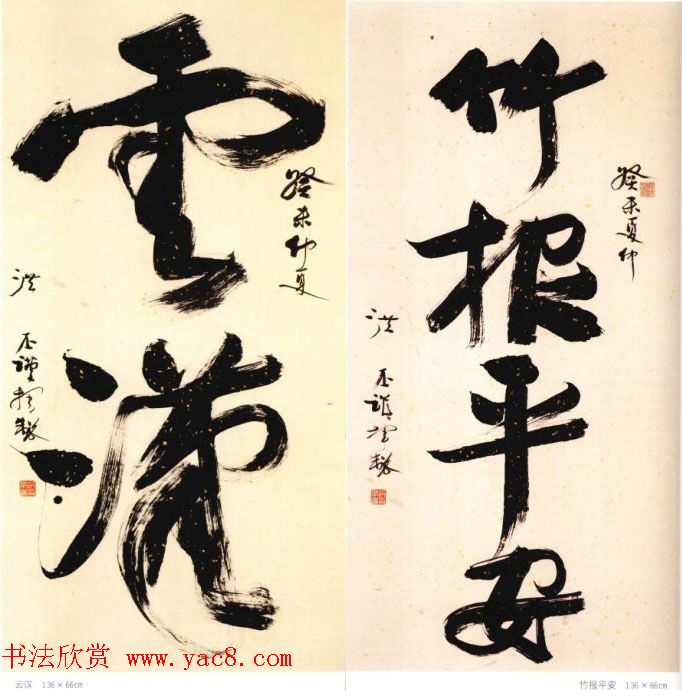 雲漢
癸未仲夏
洪
丕謨揮毫
竹报平安
癸未夏仲
洪
丕謨揮毫
书法欣赏 www.yac8.com
云汉 136×66cm
竹报平安 136×66cm